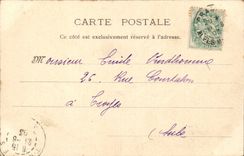 CARTE POSTALE
Ce côté est exclusivement réservé à l'adresse.
Monsieur Emile
25, Rue Courtalon
à Troyes
(Aube)